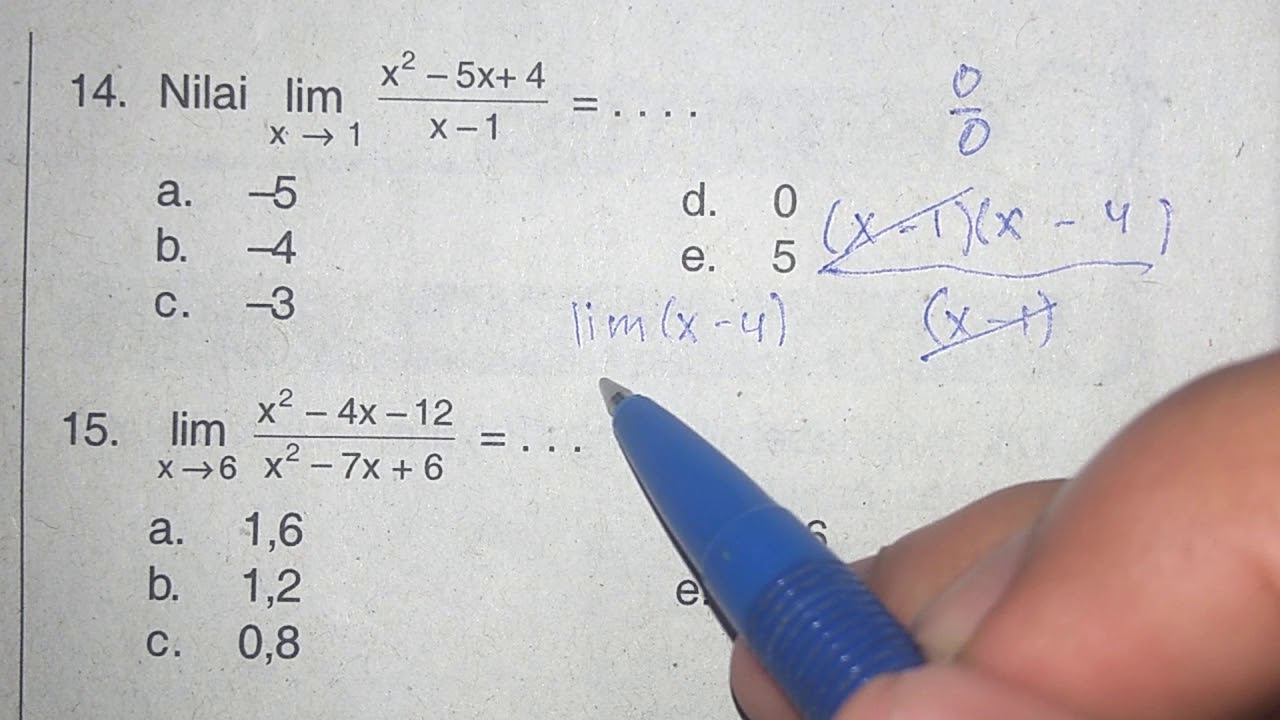 14. Nilai lim x → 1 x² – 5x + 4 / x – 1 = . . . .
a. –5
b. –4
c. –3
d. 0
e. 5
0/0
(x - 1)(x - 4) / (x - 1)
lim (x - 4)
15. lim x → 6 x² – 4x – 12 / x² – 7x + 6 = . . .
a. 1,6
b. 1,2
c. 0,8
e.